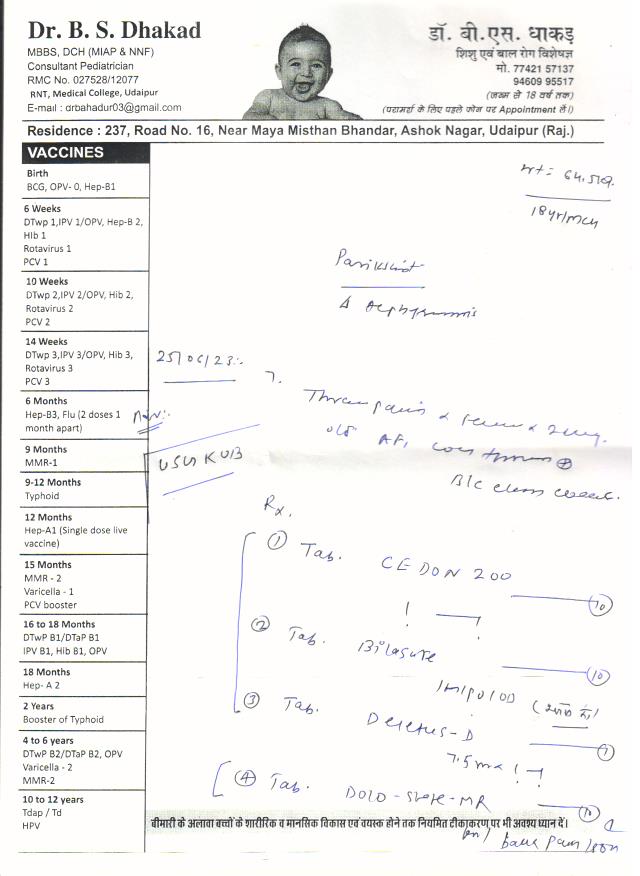 Dr. B. S. Dhakad
MBBS, DCH (MIAP & NNF)
Consultant Pediatrician
RMC No. 027528/12077
RNT, Medical College, Udaipur
E-mail : drbahadur03@gmail.com
डॉ. बी.एस. धाकड़
शिशु एवं बाल रोग विशेषज्ञ
मो. 77421 57137
94609 95517
(जन्म से 18 वर्ष तक)
(परामर्श के लिए पहले फोन पर Appointment लें।)
Residence : 237, Road No. 16, Near Maya Misthan Bhandar, Ashok Nagar, Udaipur (Raj.)
VACCINES
Birth
BCG, OPV- 0, Hep-B1
6 Weeks
DTwp 1,IPV 1/OPV, Hep-B 2,
HIb 1
Rotavirus 1
PCV 1
10 Weeks
DTwp 2,IPV 2/OPV, Hib 2,
Rotavirus 2
PCV 2
14 Weeks
DTwp 3,IPV 3/OPV, Hib 3,
Rotavirus 3
PCV 3
6 Months
Hep-B3, Flu (2 doses 1
month apart)
9 Months
MMR-1
9-12 Months
Typhoid
12 Months
Hep-A1 (Single dose live
vaccine)
15 Months
MMR - 2
Varicella - 1
PCV booster
16 to 18 Months
DTwP B1/DTaP B1
IPV B1, Hib B1, OPV
18 Months
Hep- A 2
2 Years
Booster of Typhoid
4 to 6 years
DTwP B2/DTaP B2, OPV
Varicella - 2
MMR-2
10 to 12 years
Tdap / Td
HPV
wt = 64.5
18 yr/mch
Parikshit
25/06/23
USG KUB
B/C clear
Rx.
① Tab. CEDON 200
10
② Tab. Bilasure
10
③ Tab. Deletus-D
④ Tab. DOLO - MR
10
back pain
बीमारी के अलावा बच्चों के शारीरिक व मानसिक विकास एवं वयस्क होने तक नियमित टीकाकरण पर भी अवश्य ध्यान दें।